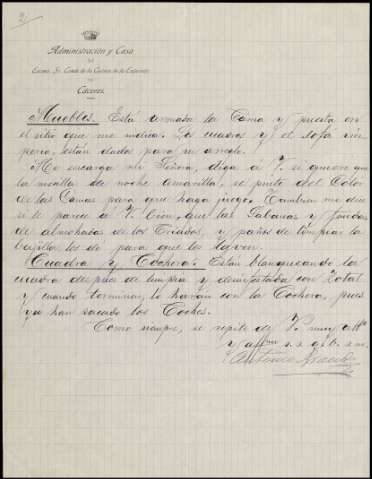 2/
Administración y Casa
del
Excmo. Sr. Conde de la Encina de la
Cáceres.
Muebles. Está armada la Cama y puesta en
el sitio que me indica. Los cuadros y el sofá
para, están dados para su arreglo.
Me encarga mi Señora, diga á V. si quieren que
la mesilla de noche amarilla, se pinte del Color
de las Camas para que haga juego. Tambien me dice
si le parece á V. bien, que las Sabanas y fundas
de almohadas de los Criados, y paños de limpiar la
bajilla, los dé para que los laven.
Cuadra y Cochera. Están blanqueando la
cuadra despues de limpia y desinfectada con Zotal
y cuando terminen, lo harán con la Cochera, pues
ya han sacado los Coches.
Como siempre, se repite de V. muy
y s. s. q. b. s. m.
Antonio